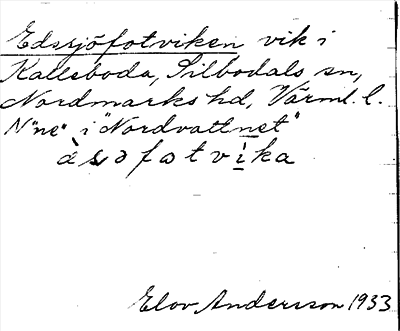 Edssjöfotviken vik i
Kalleboda, Silbodals sn,
Nordmarks hd, Värml. l.
N"ne" i "Nordvattnet"
àsəfωtvìka
Elov Andersson 1933